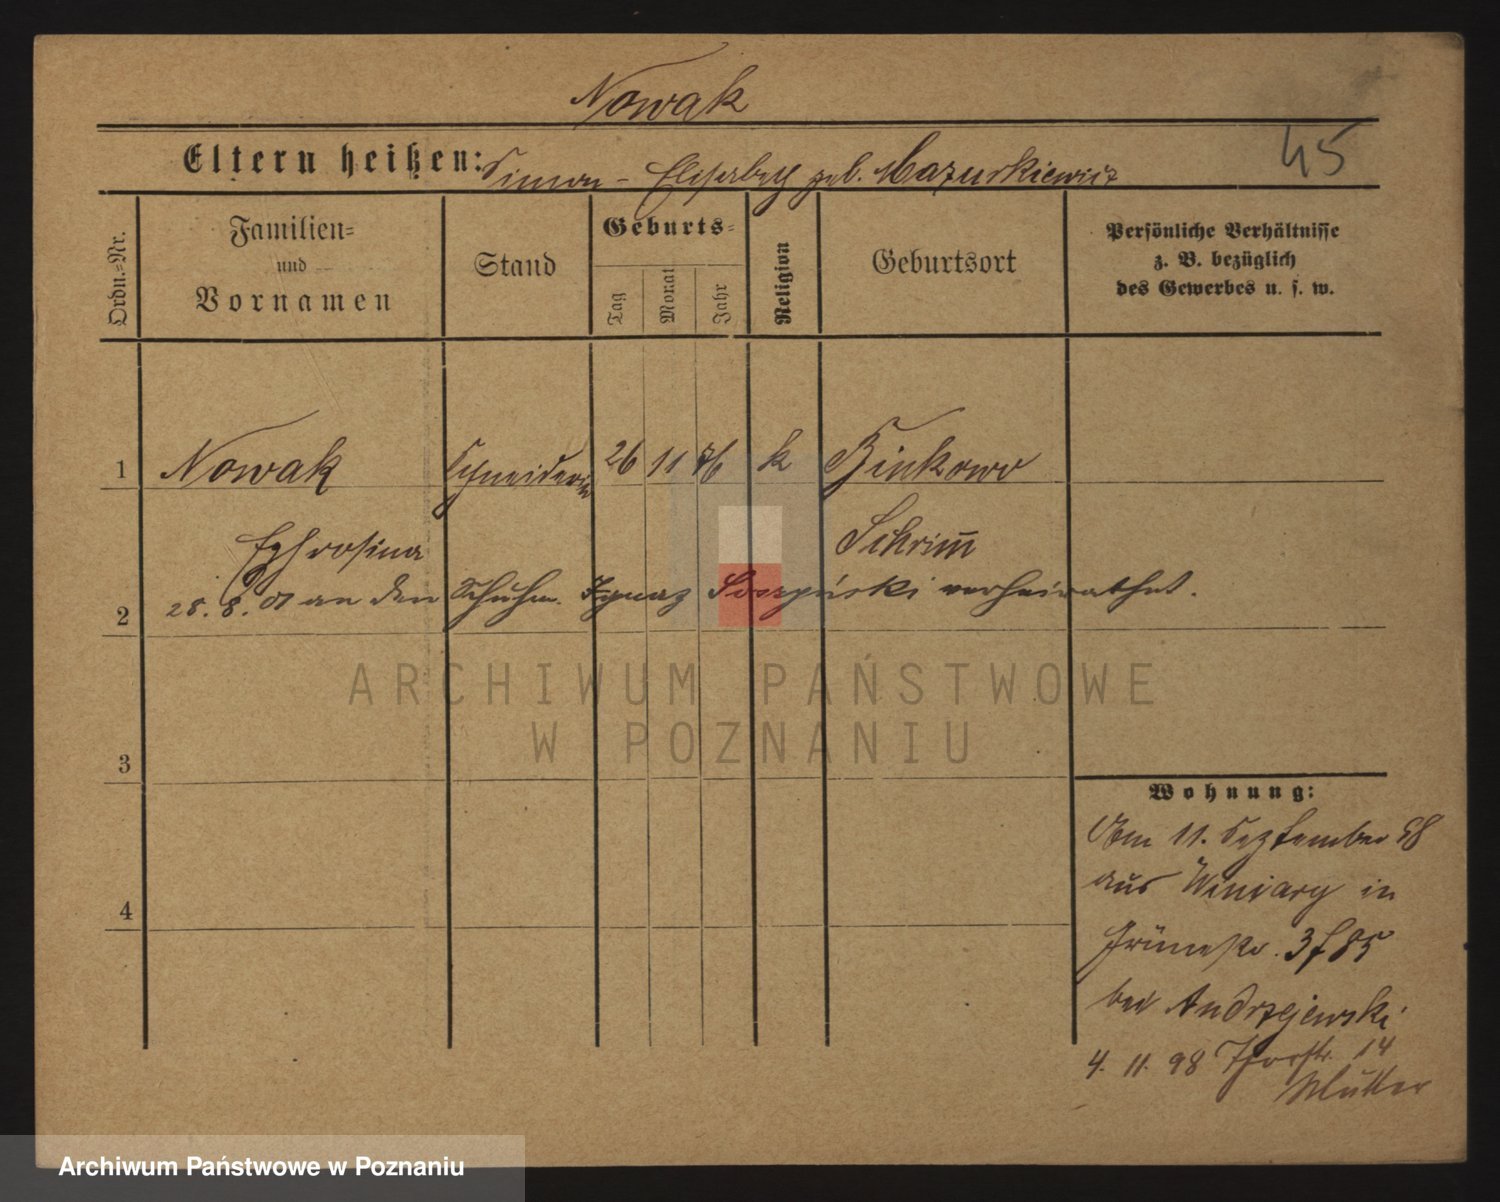 Nowak
45
Eltern heißen: Simon – Elisabeth geb. Mazurkiewicz
Ordn.-Nr.
Familien-
und
Vornamen
Stand
Geburts-
Tag
Monat
Jahr
Religion
Geburtsort
Persönliche Verhältnisse
z. B. bezüglich
des Gewerbes u. s. w.
1 Nowak Schneiderin 26 11 76 k Binkowo
Ephrosina Schrimm
28. 8. 01 an den Schuhm. Ignaz verheirathet.
2
3
4
ARCHIWUM PAŃSTWOWE
W POZNANIU
Wohnung:
Am 11. September 98
aus Winiary in
Grünestr. 3 f 85
bei Andrzejewski
4. 11. 98 Thorstr. 14
Mutter
Archiwum Państwowe w Poznaniu